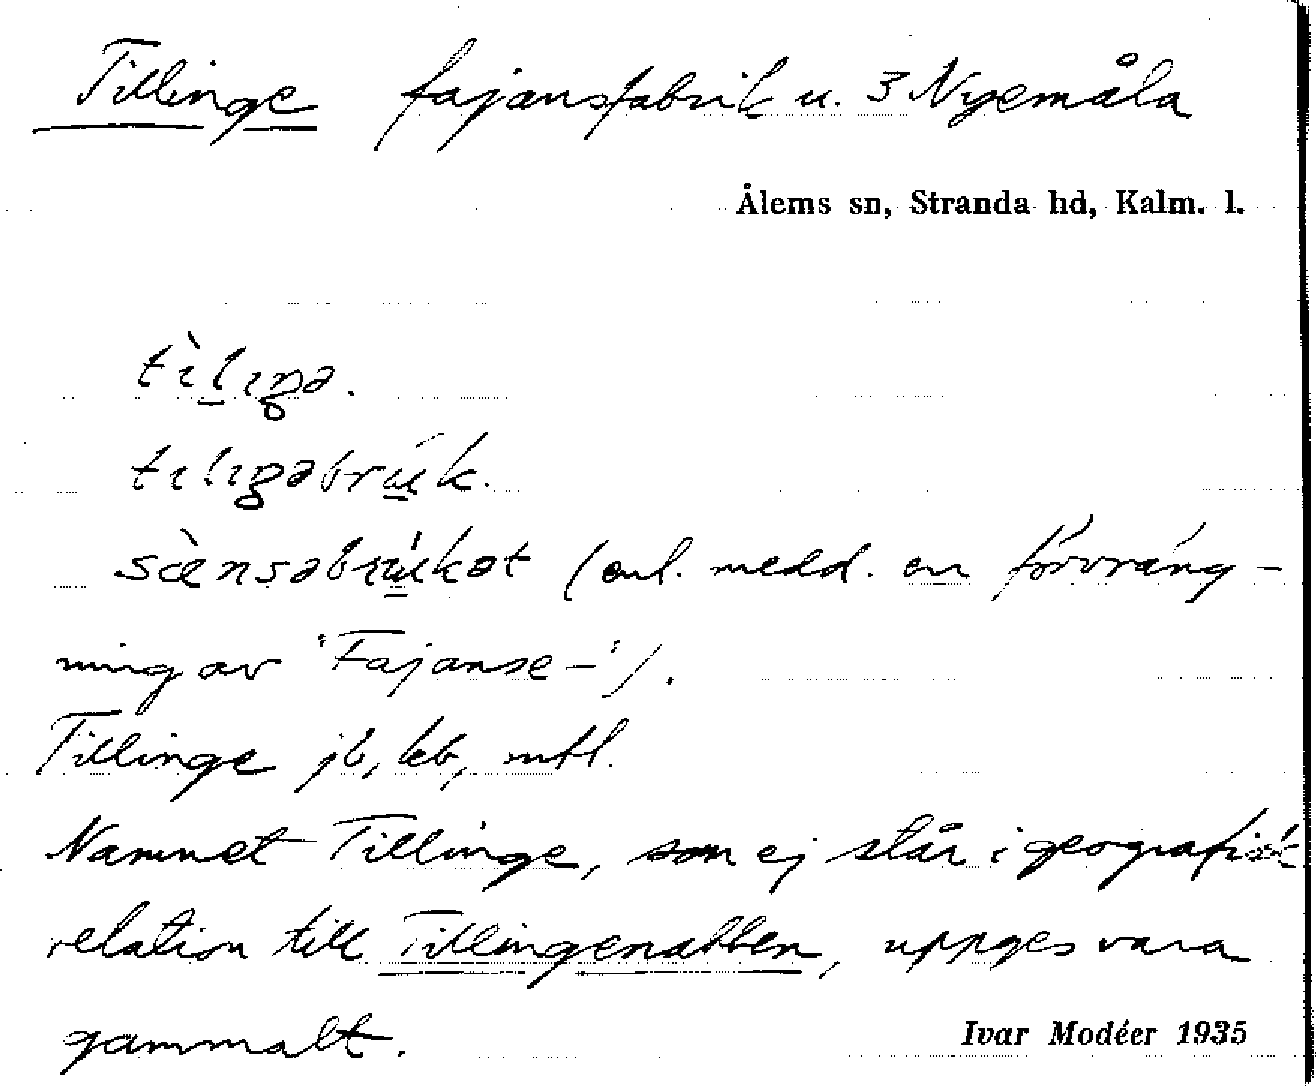 Tillinge fajansfabrik u. 3 Nyemåla
Ålems sn, Stranda hd, Kalm. l.
tìlıŋə.
tılıŋəbrúk.
sænsəbrúkət (enl. medd. en förvräng-
ning av 'Fajanse-').
Tillinge jb, kb, mtl.
Namnet Tillinge, som ej står i geografisk
relation till Tillingenabben, uppges vara
gammalt.
Ivar Modéer 1935